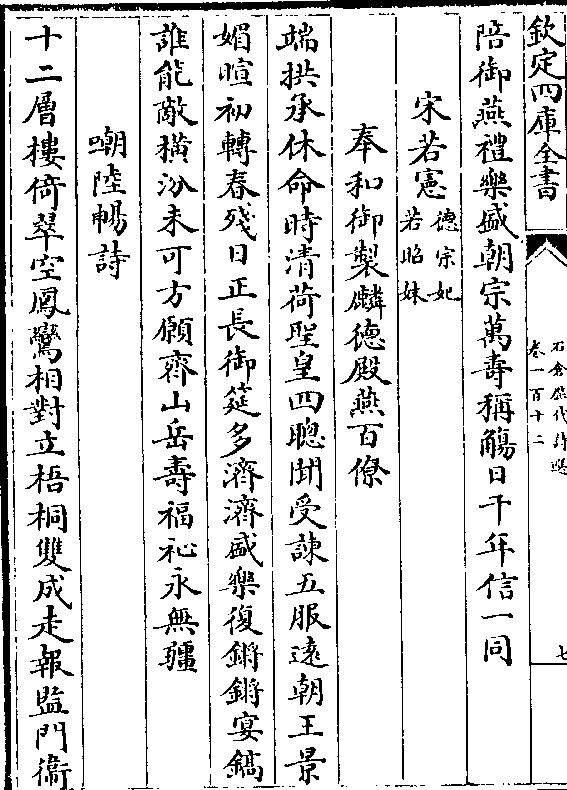 欽定四庫全書
石倉歷代詩選
卷一百十二
七
陪御燕禮樂盛朝宗萬壽稱觴日千年信一同
宋若憲德宗妃
若昭妹
奉和御製麟德殿燕百僚
端拱承休命時清荷聖皇四聰聞受諫五服遠朝王景
媚暄初轉春殘日正長御筵多濟濟盛樂復鏘鏘宴鎬
誰能敵橫汾未可方願齊山岳壽福祉永無疆
嘲陸暢詩
十二層樓倚翠空鳳鸞相對立梧桐雙成走報監門衞